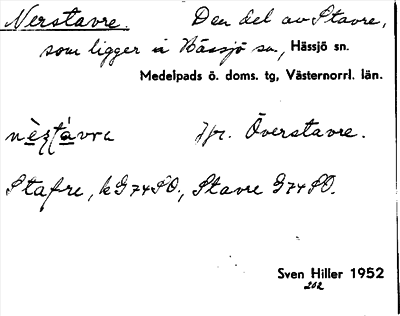 Nerstavre. Den del av Stavre,
som ligger i Hässjö sn., Hässjö sn.
Medelpads ö. doms. tg, Västernorrl. län.
Jfr. Överstavre.
Stafre, kG74SO., Stavre G74SO.
Sven Hiller 1952
202